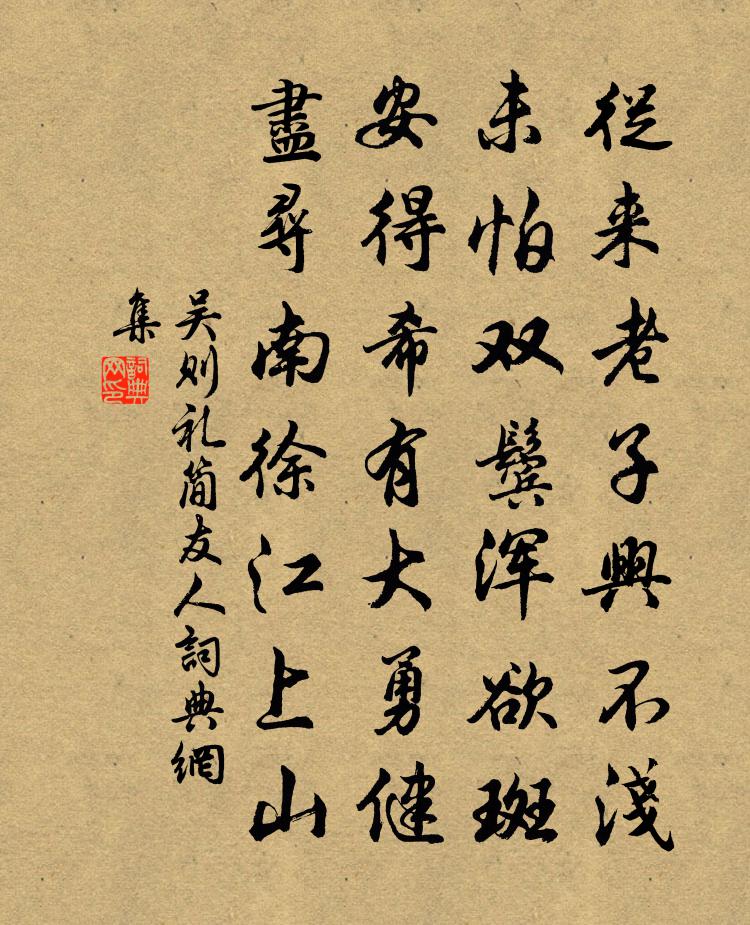 從来老子興不淺
未怕双鬓浑欲斑
安得希有大勇健
盡尋南徐江上山
吴则礼简友人詞典網
集
詞典
网印